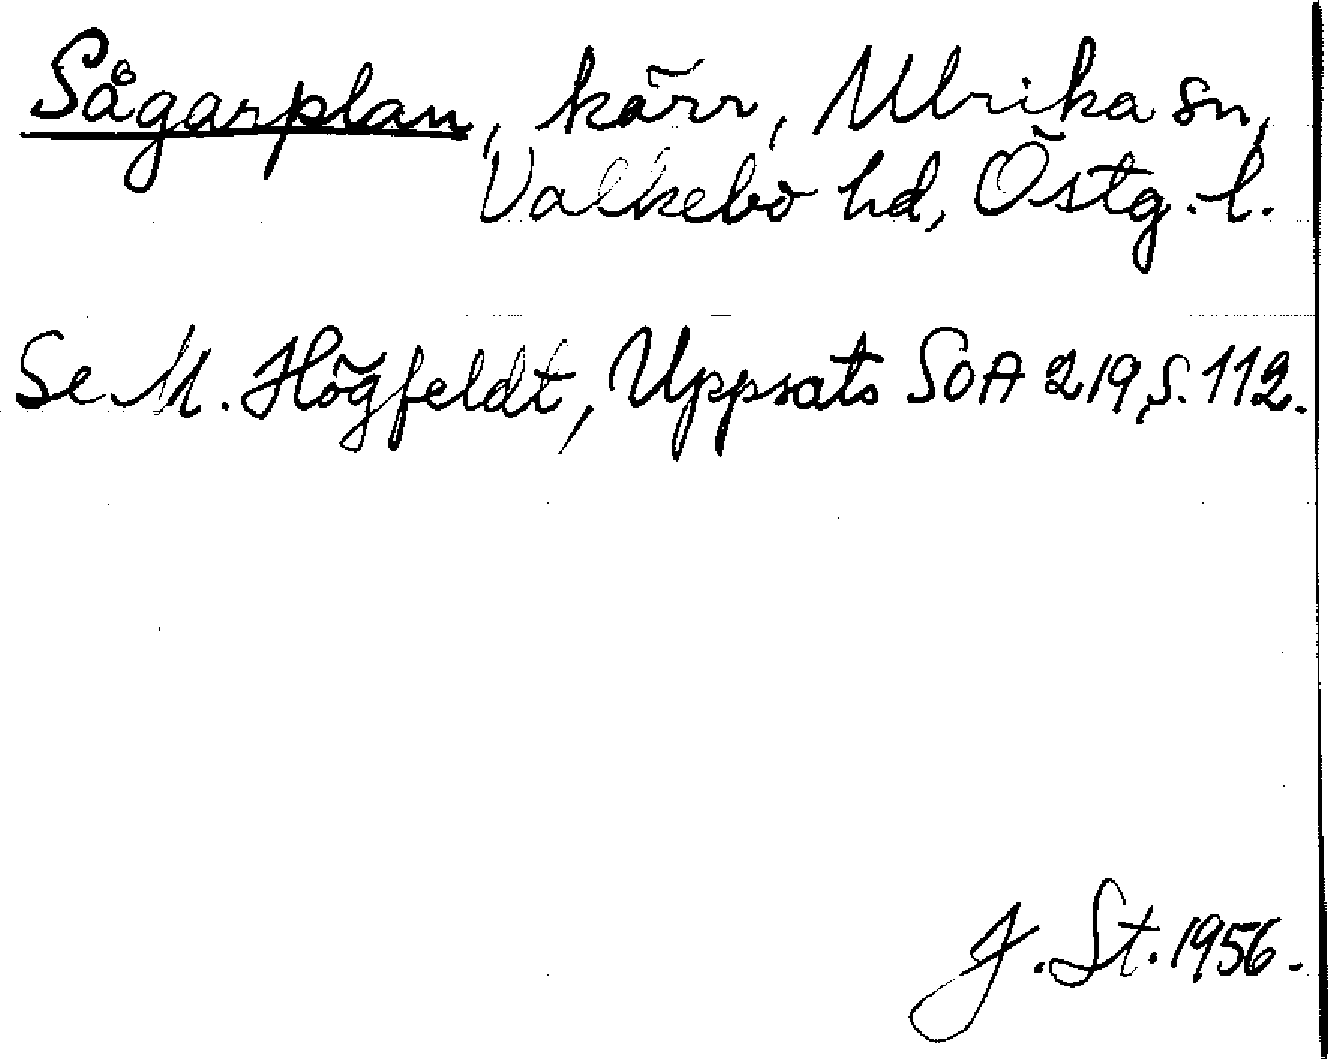 Sågarplan, kärr, Ulrika sn,
Valkebo hd, Östg. l.
Se M. Högfeldt, Uppsats SOA 219, s. 112.
J. St. 1956.